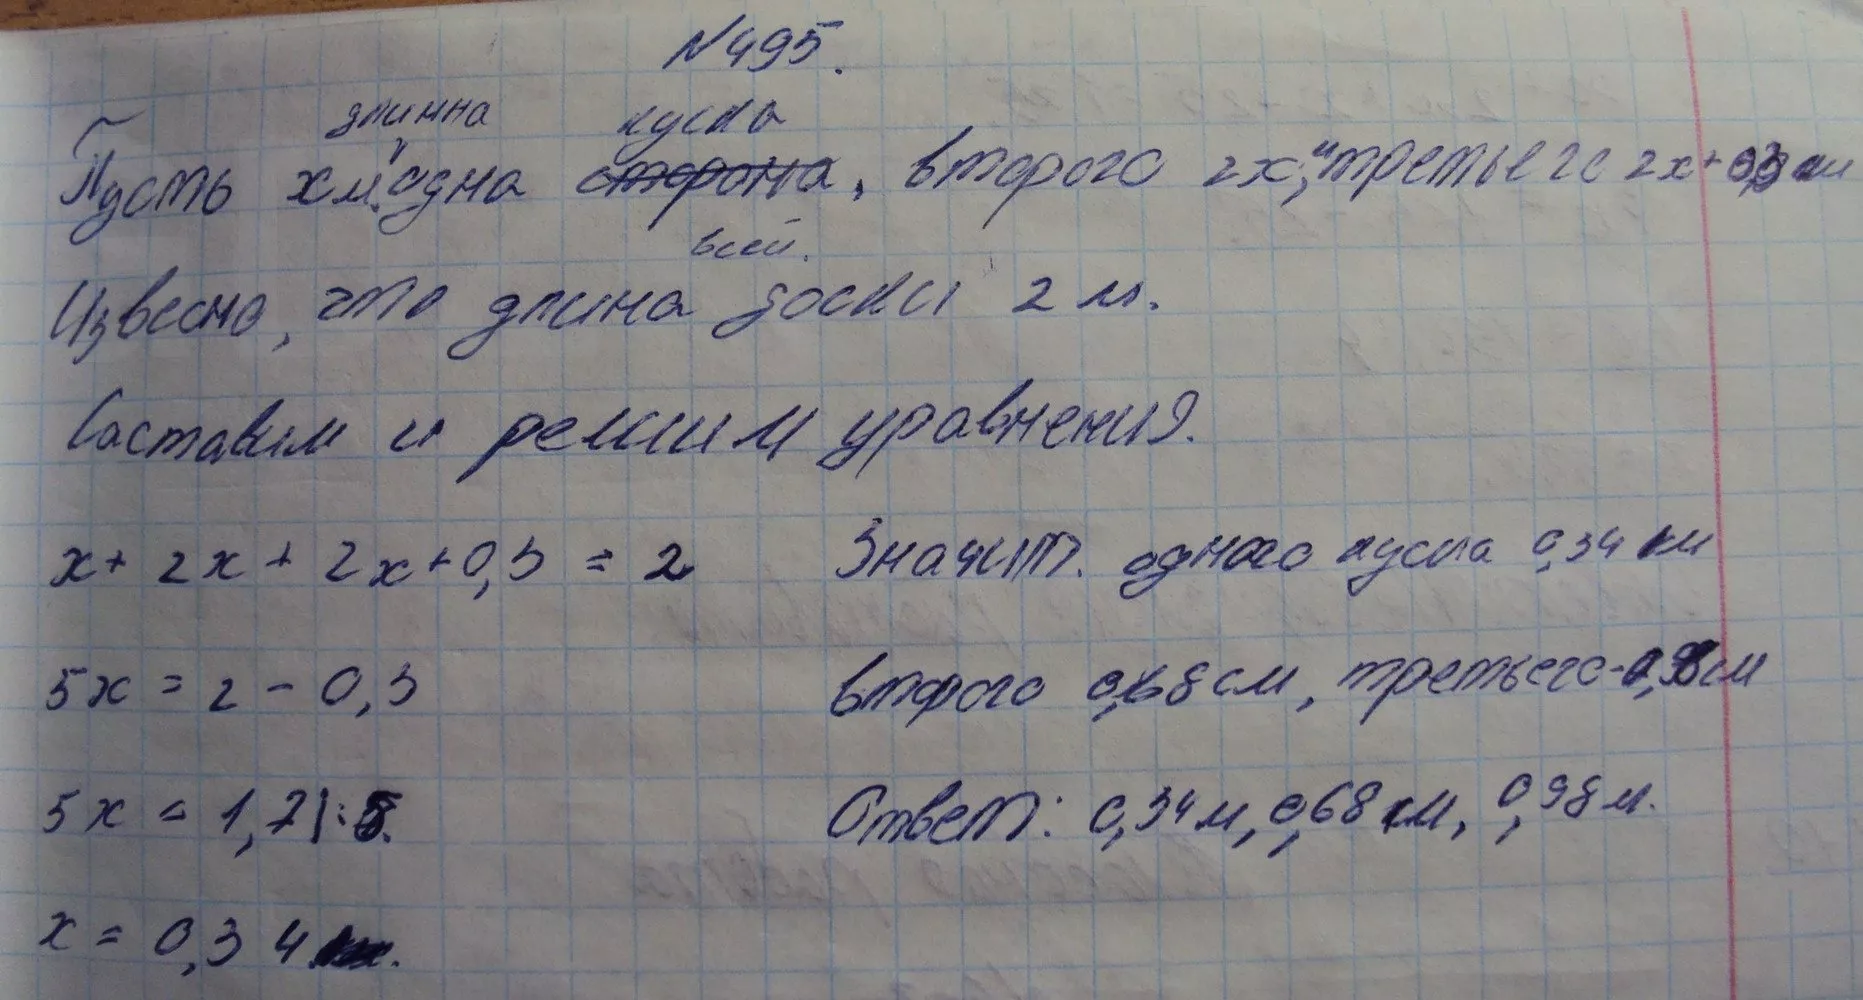 №495.
длинна куска
Пусть х м. одна сторона, второго 2х, третьего 2х+0,3 м
всей.
Известно, что длина доски 2 м.
Составим и решим уравнения.
х + 2х + 2х + 0,3 = 2
5х = 2 - 0,3
5х = 1,7|:5.
х = 0,34
Значит. одного куска 0,34 м
второго 0,68 см, третьего - 0,98 см
Ответ: 0,34 м, 0,68 м, 0,98 м.